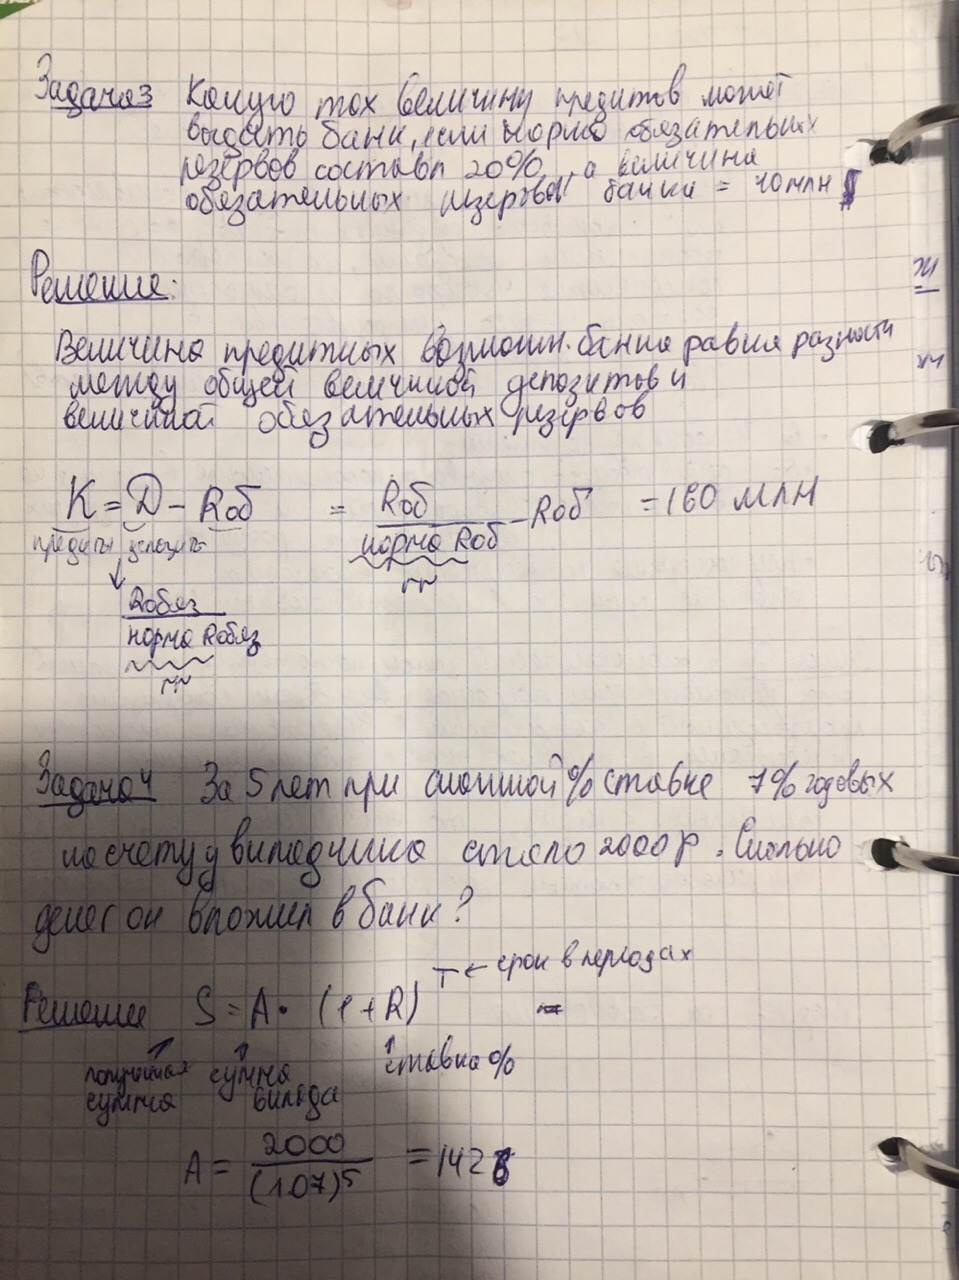 Задача 3 Какую max величину кредитов может
выдать банк, если норма обязательных
резервов составл 20%, а величина
обязательных резервов банка = 40 млн $
Решение:
Величина кредитных возможн. банка равна разности
между общей величиной депозитов и
величиной обязательных резервов
K = Д - Rоб = Rоб / норма Rоб - Rоб = 160 млн
кредиты депозиты
Rобяз
норма Rобяз
rr
rr
Задача 4 За 5 лет при сложной % ставке 7% годовых
на счету у вкладчика стало 2000 р. Сколько
денег он вложил в банк?
T ← срок в периодах
Решение S = A · (1 + R)
полученная сумма ставка %
сумма вклада
A = 2000 / (1.07)^5 = 1426